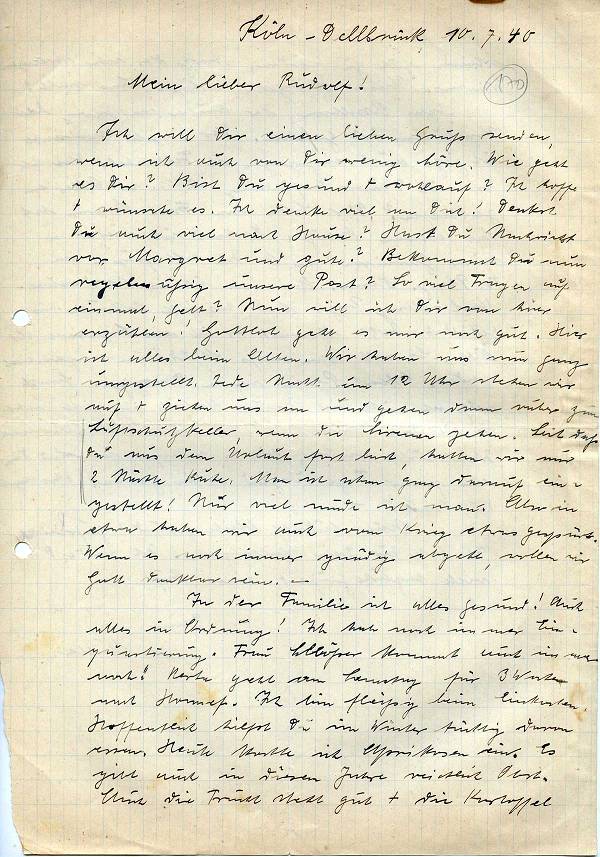 Köln-Dellbrück, 10.7.40
100
Mein lieber Rudolf!
Ich will Dir einen lieben Gruß senden,
wenn ich auch von Dir wenig höre. Wie geht
es Dir? Bist Du gesund + wohlauf? Ich hoffe
+ wünsche es. Ich denke viel an Dich! Denkst
Du auch viel nach Hause? Hast Du Nachricht
von Margret und gute? Bekommst Du nun
regelmäßig unsere Post? So viel Fragen auf
einmal, gelt? Nun will ich Dir von hier
erzählen! Gottlob geht es mir noch gut. Hier
ist alles beim Alten. Wir haben uns nun ganz
umgestellt. Jede Nacht um 12 Uhr stehen wir
auf + ziehen uns an und gehen dann runter zum
Luftschutzkeller, wenn die Sirenen gehen. Seit daß
Du aus dem Urlaub fort bist, hatten wir nur
2 Nächte Ruhe. Man ist eben ganz darauf ein-
gestellt! Nur viel müde ist man. Also in
etwa haben wir auch vom Krieg etwas gespürt.
Wenn es noch immer gnädig abgeht, wollen wir
Gott dankbar sein. —
In der Familie ist alles gesund! Auch
alles in Ordnung! Ich habe noch immer Ein-
quartierung. Frau kommt auch immer
noch! geht am Samstag für 3 Wochen
nach Honnef. Ich bin fleißig beim Einkochen.
Hoffentlich hilfst Du im Winter tüchtig davon
essen. Heute machte ich Aprikosen ein. Es
gibt auch in diesem Jahre reichlich Obst.
Auch die Frucht steht gut + die Kartoffel